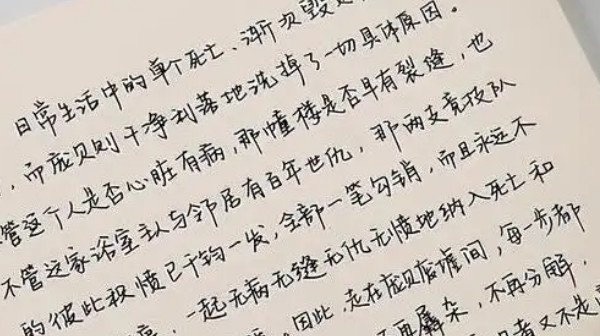 日常生活中的单个死亡、渐次毁
，而庞贝则干净利落地洗掉了一切具体原因。
管这个人是否心脏有病，那幢楼是否早有裂缝，也
不管这家浴室主人与邻居有百年世仇，那两支竞技队
的彼此积愤已千钧一发，全部一笔勾销，而且永远不
一起无病无缝无仇无愤地纳入死亡和
因此，走在庞贝废墟间，每一步都
再羼杂，不再分解，
又不是